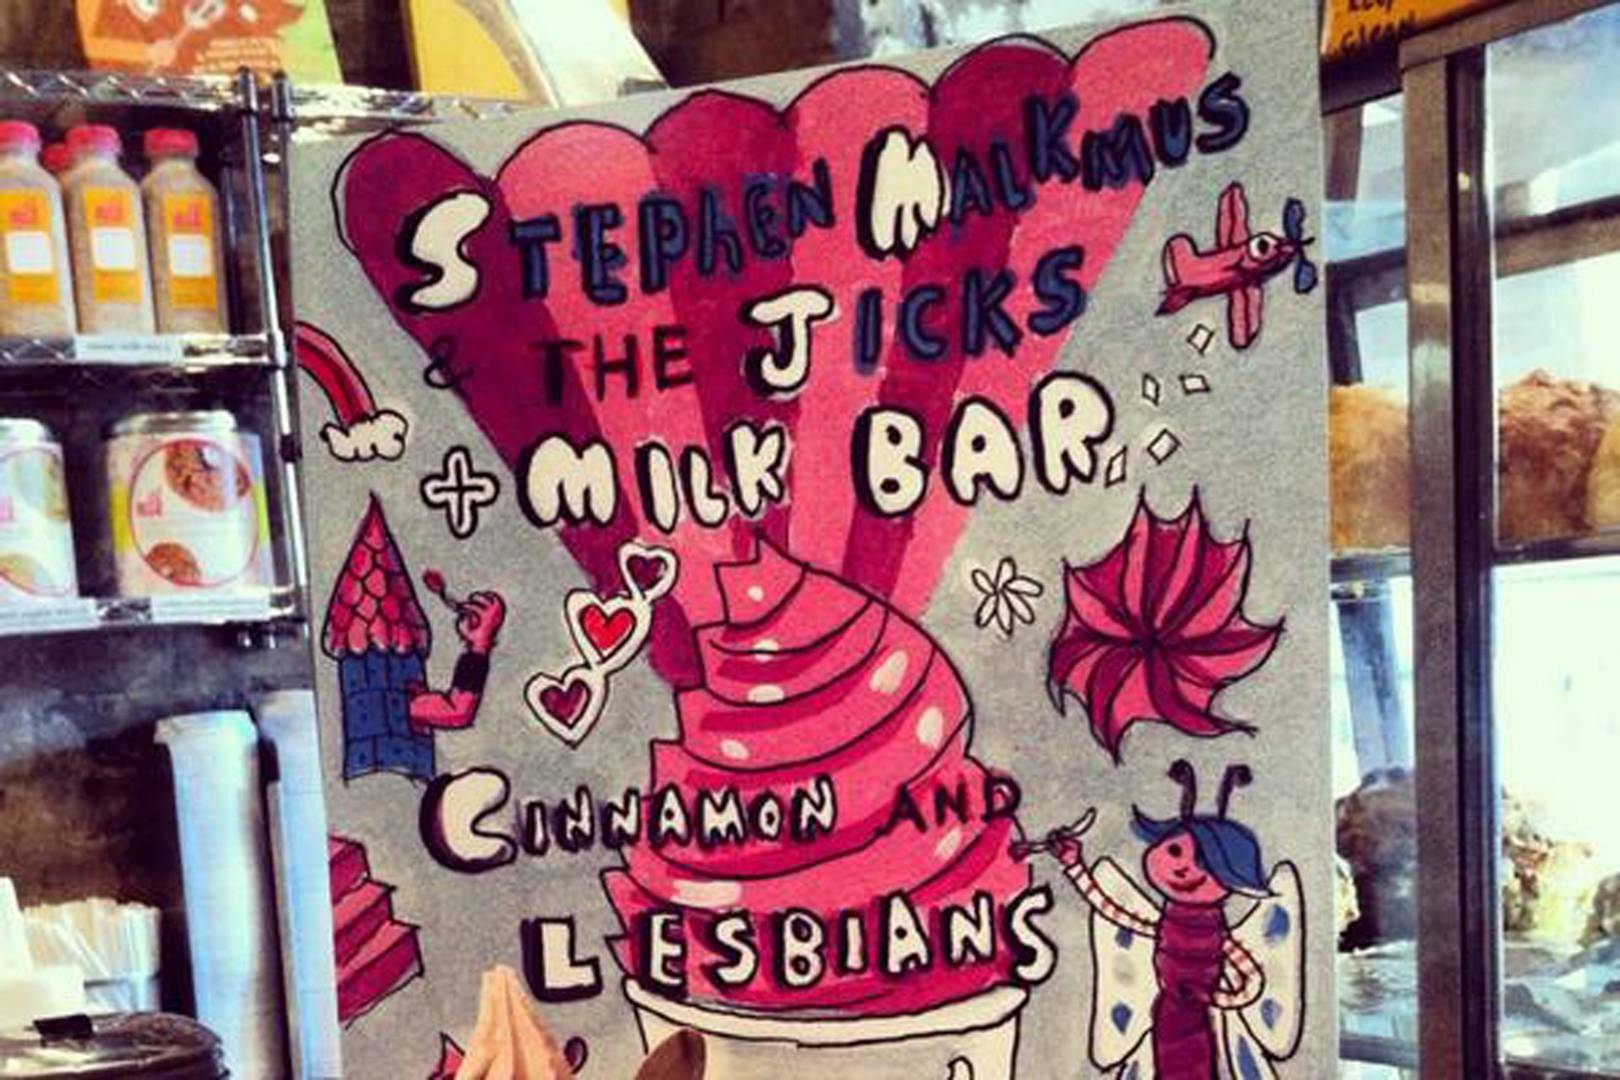 STEPHEN MALKMUS
& THE JICKS
+ MILK BAR
CINNAMON AND
LESBIANS